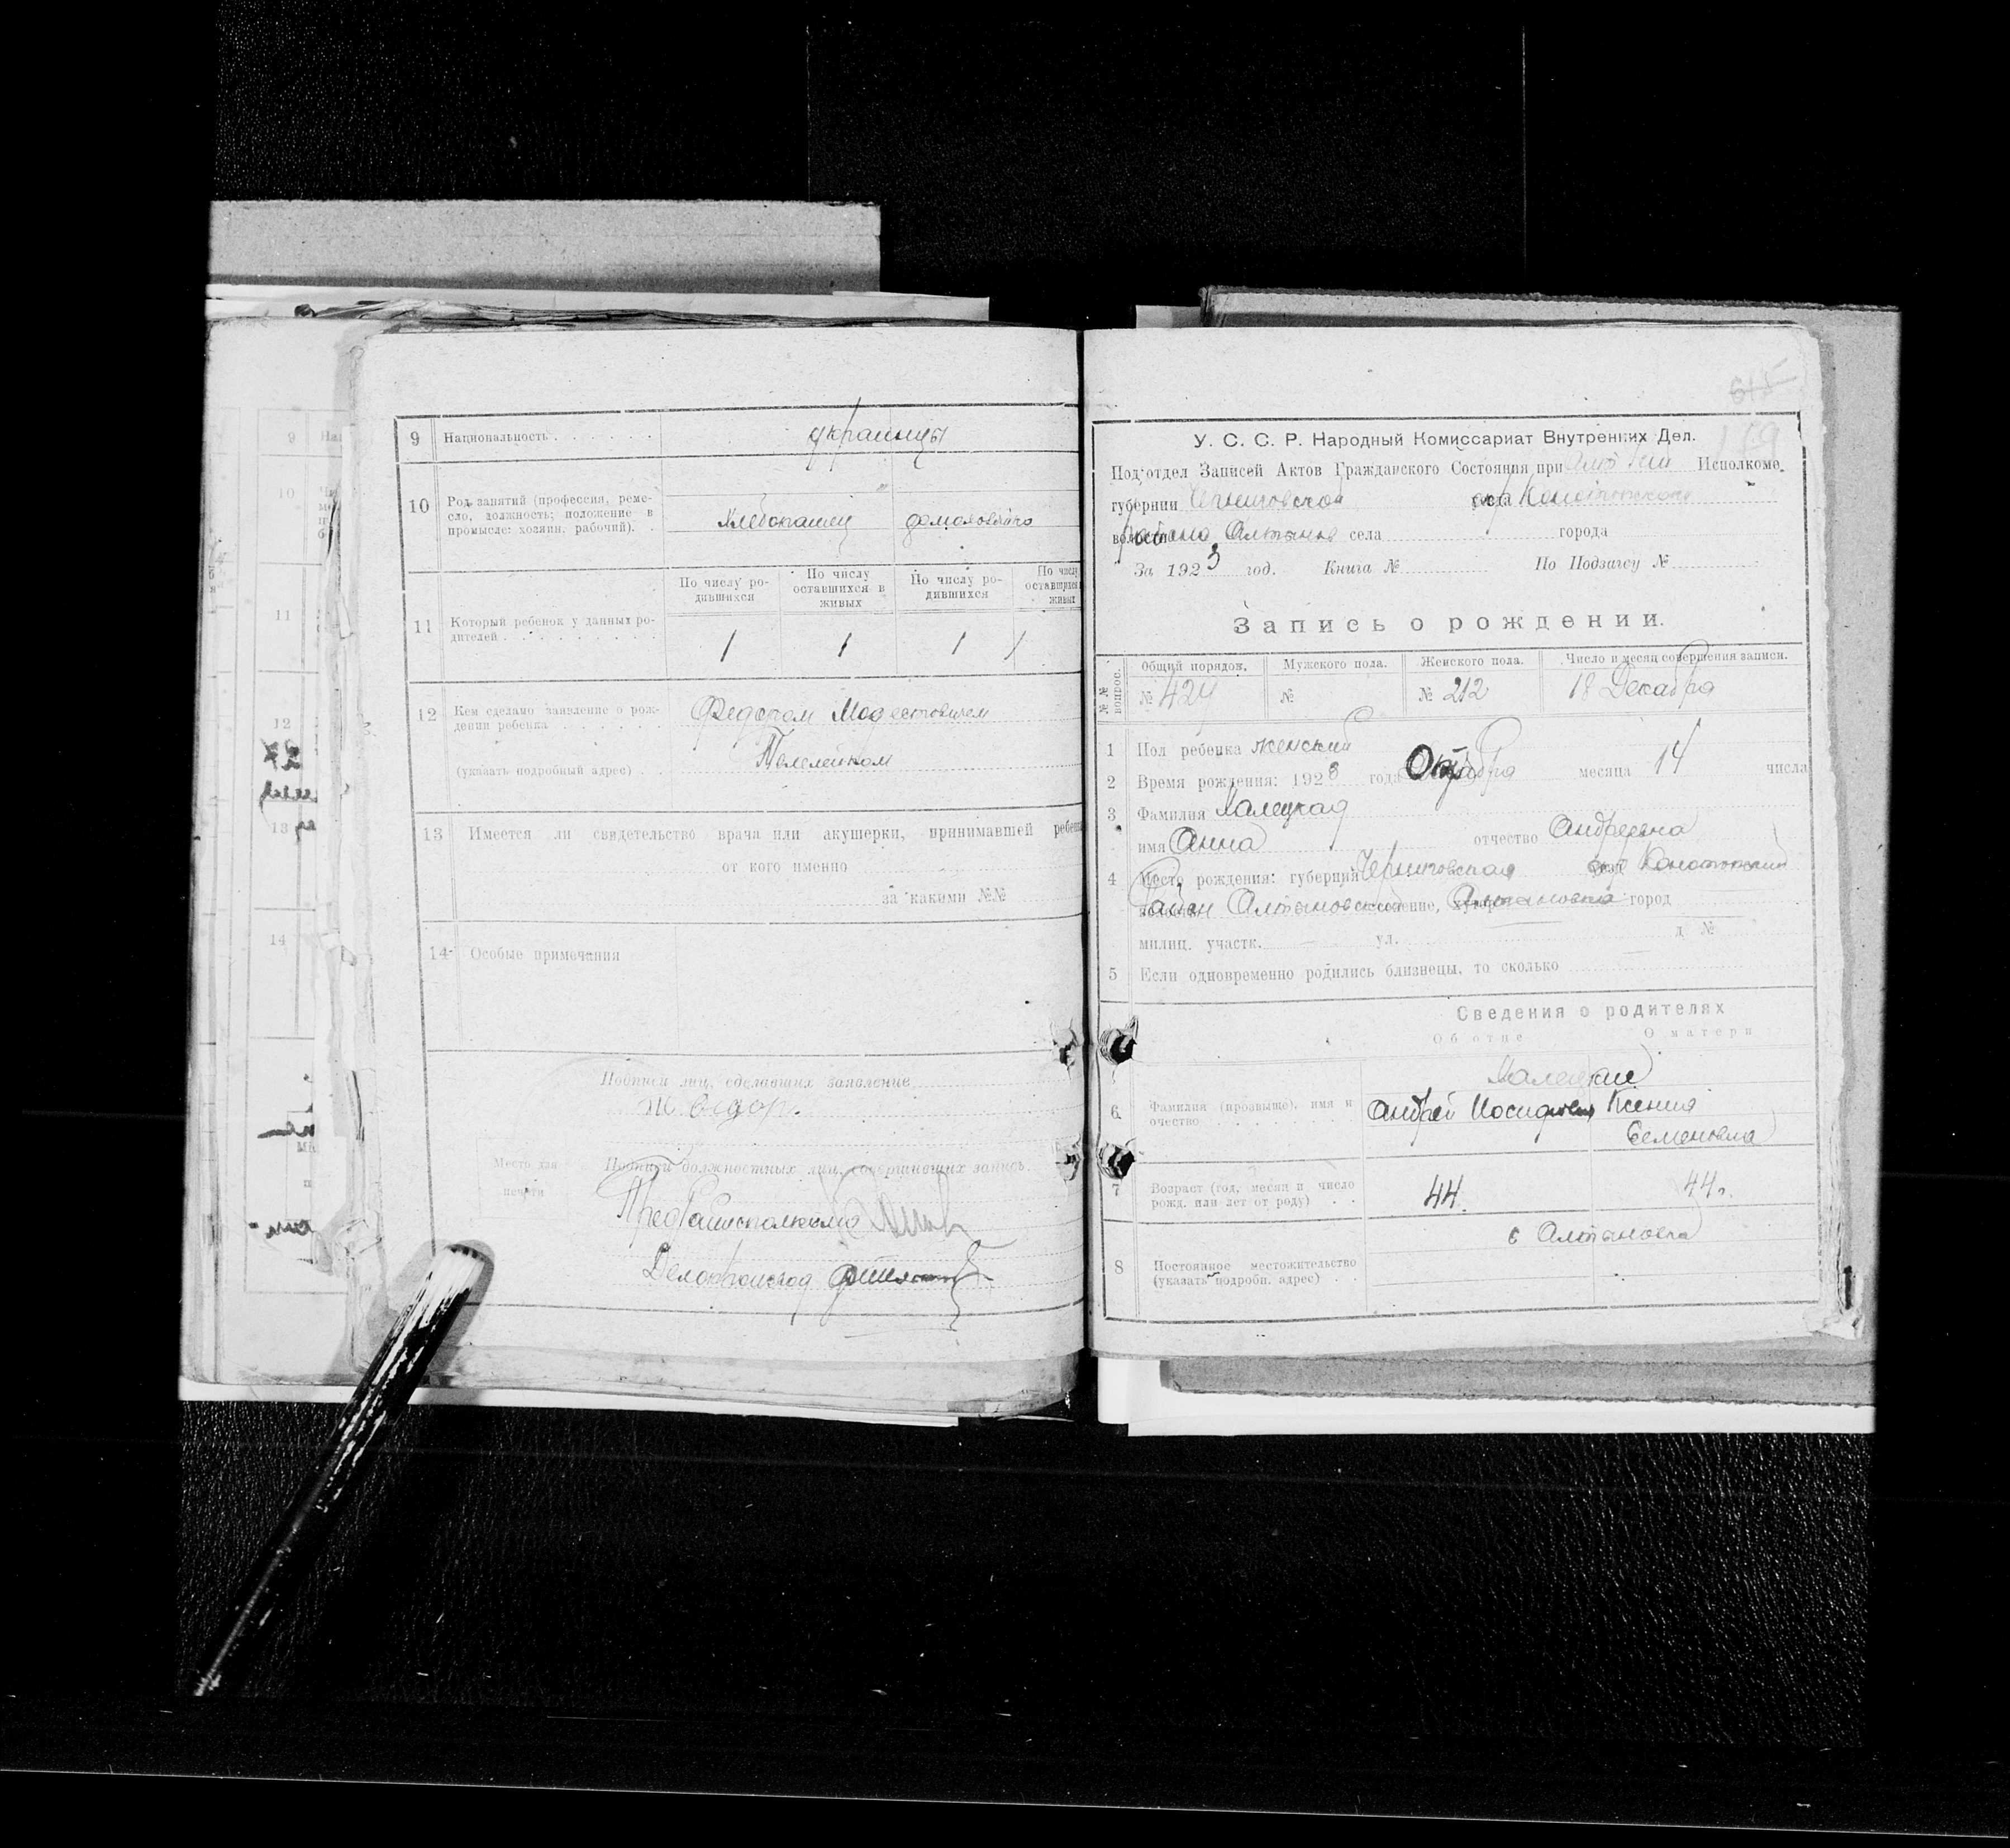 9 Национальность украинцы
10 Род занятий (профессия, реме-
сло, должность; положение в
промысле: хозяин, рабочий).
хлебопашец домохозяйка
По числу ро-
дившихся
По числу
оставшихся в
живых
По числу ро-
дившихся
По числу
оставшихся
живых
11 Который ребенок у данных ро-
дителей
1 1 1 1
12 Кем сделано заявление о рож-
дении ребенка
Федором Модестовичем
(указать подробный адрес)
13 Имеется ли свидетельство врача или акушерки, принимавшей
от кого именно
за какими №№
14 Особые примечания
Подписи лиц, сделавших заявление
Место для
печати
Подписи должностных лиц, совершивших запись.
Пред Райисполкома
Делопроизвод
615
У. С. С. Р. Народный Комиссариат Внутренних Дел.
Под'отдел Записей Актов Гражданского Состояния при Исполкоме
губернии Черниговской окр Конотопского
района села города
За 1923 год. Книга № По Подзагсу №
Запись о рождении.
№№ вопрос.
Общий порядов. Мужского пола. Женского пола. Число и месяц совершения записи.
№ 424 № № 212 18 Декабря
1 Пол ребенка женский
2 Время рождения: 1923 года Октября месяца 14 числа
3 Фамилия
имя Анна отчество Андреевна
4 Место рождения: губерния Черниговская окр Конотопский
Район Алтыновск селение, Алтыновка город
милиц. участк. ул. д №
5 Если одновременно родились близнецы, то сколько
Сведения о родителях
Об отце О матери
6 Фамилия (прозвыще), имя и
очество
Андрей Иосифович Ксения
Семеновна
7 Возраст (год, месяц и число
рожд. или лет от роду)
44. 44.
8 Постоянное местожительство
(указать подробн. адрес)
с Алтыновка